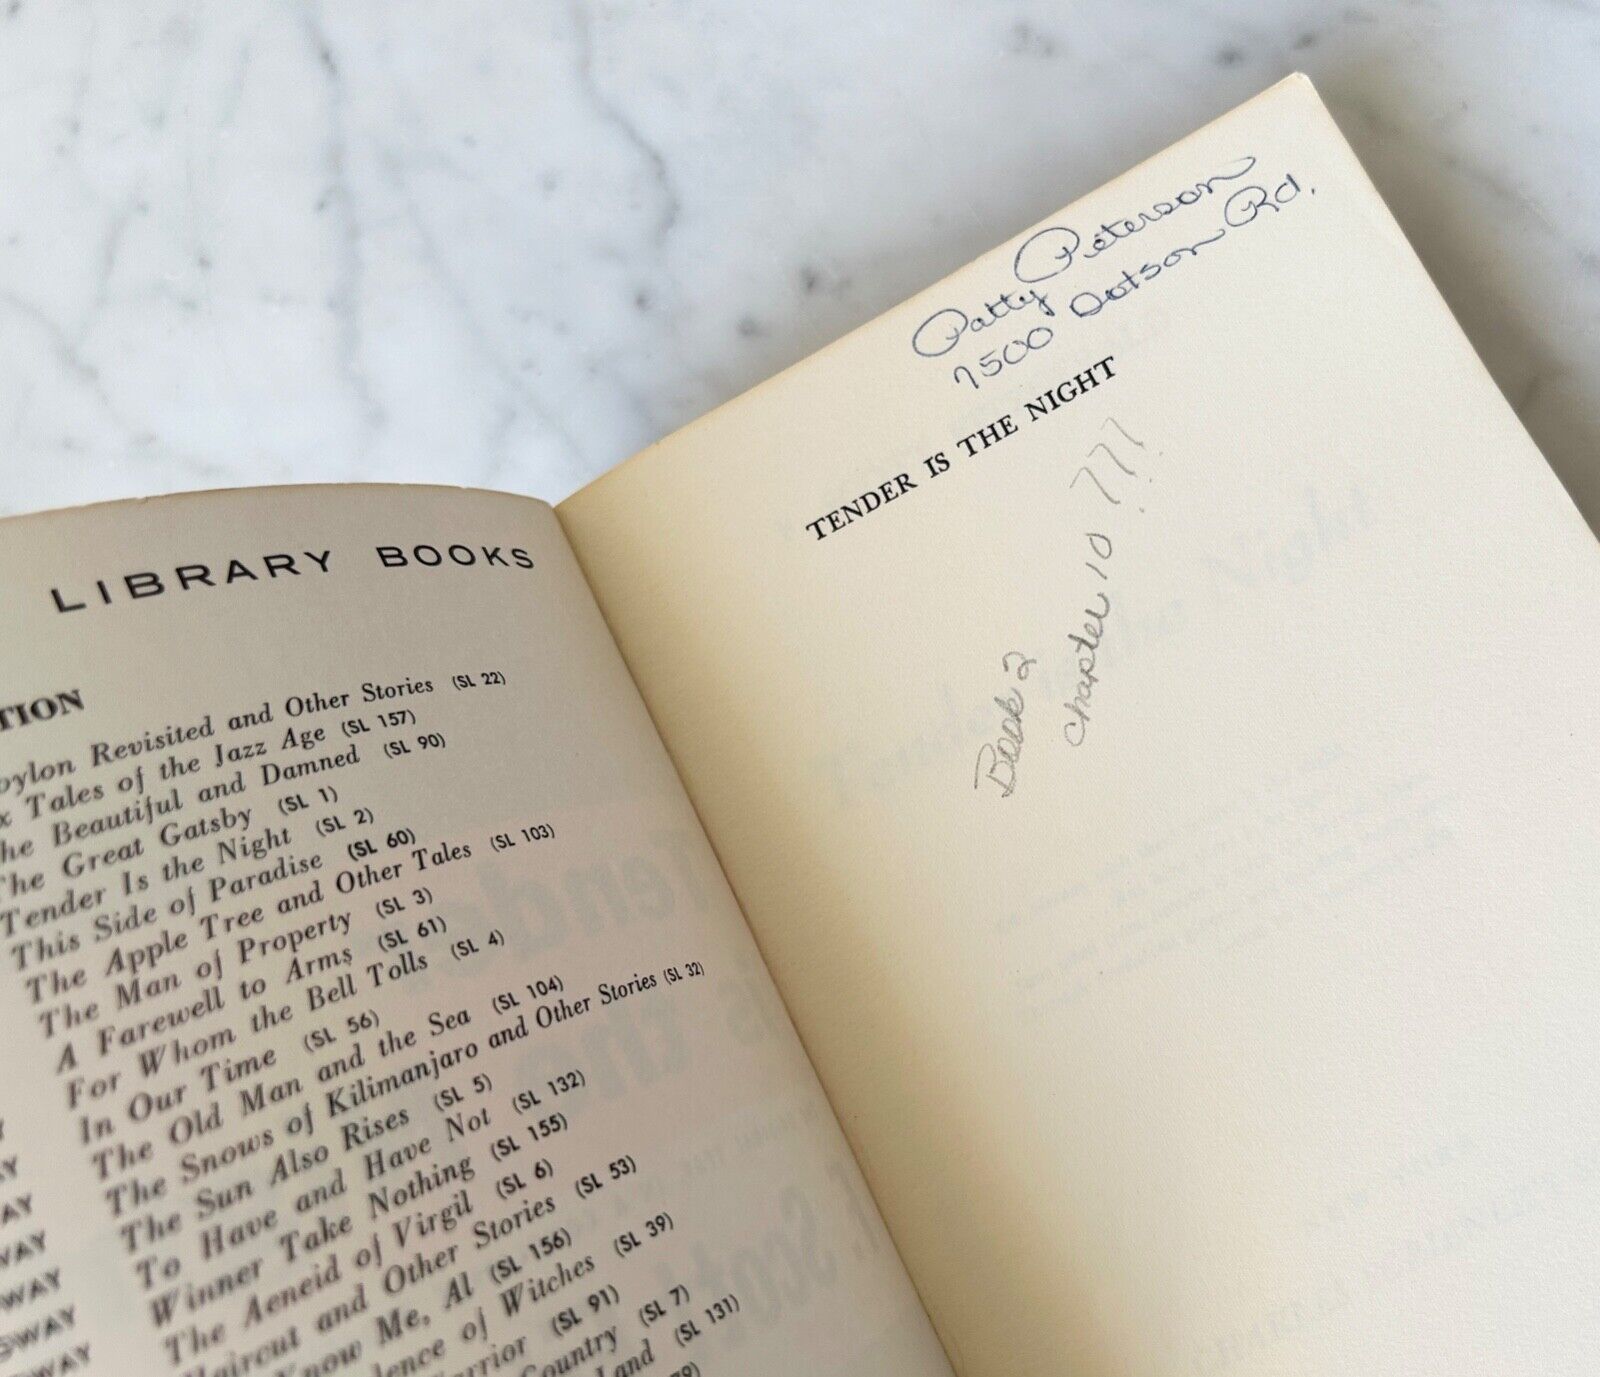 LIBRARY BOOKS
Revisited and Other Stories (SL 22)
Tales of the Jazz Age (SL 157)
The Beautiful and Damned (SL 90)
The Great Gatsby (SL 1)
Tender Is the Night (SL 2)
This Side of Paradise (SL 60)
The Apple Tree and Other Tales (SL 103)
The Man of Property (SL 3)
A Farewell to Arms (SL 61)
For Whom the Bell Tolls (SL 4)
In Our Time (SL 56)
The Old Man and the Sea (SL 104)
The Snows of Kilimanjaro and Other Stories (SL 32)
The Sun Also Rises (SL 5)
To Have and Have Not (SL 132)
Winner Take Nothing (SL 155)
The Aeneid of Virgil (SL 6)
Haircut and Other Stories (SL 53)
Know Me, Al (SL 156)
of Witches (SL 39)
(SL 91)
Country (SL 7)
Land (SL 131)
Patty Peterson
7500 Dotson Rd.
TENDER IS THE NIGHT
Book 2
Chapter 10 ???